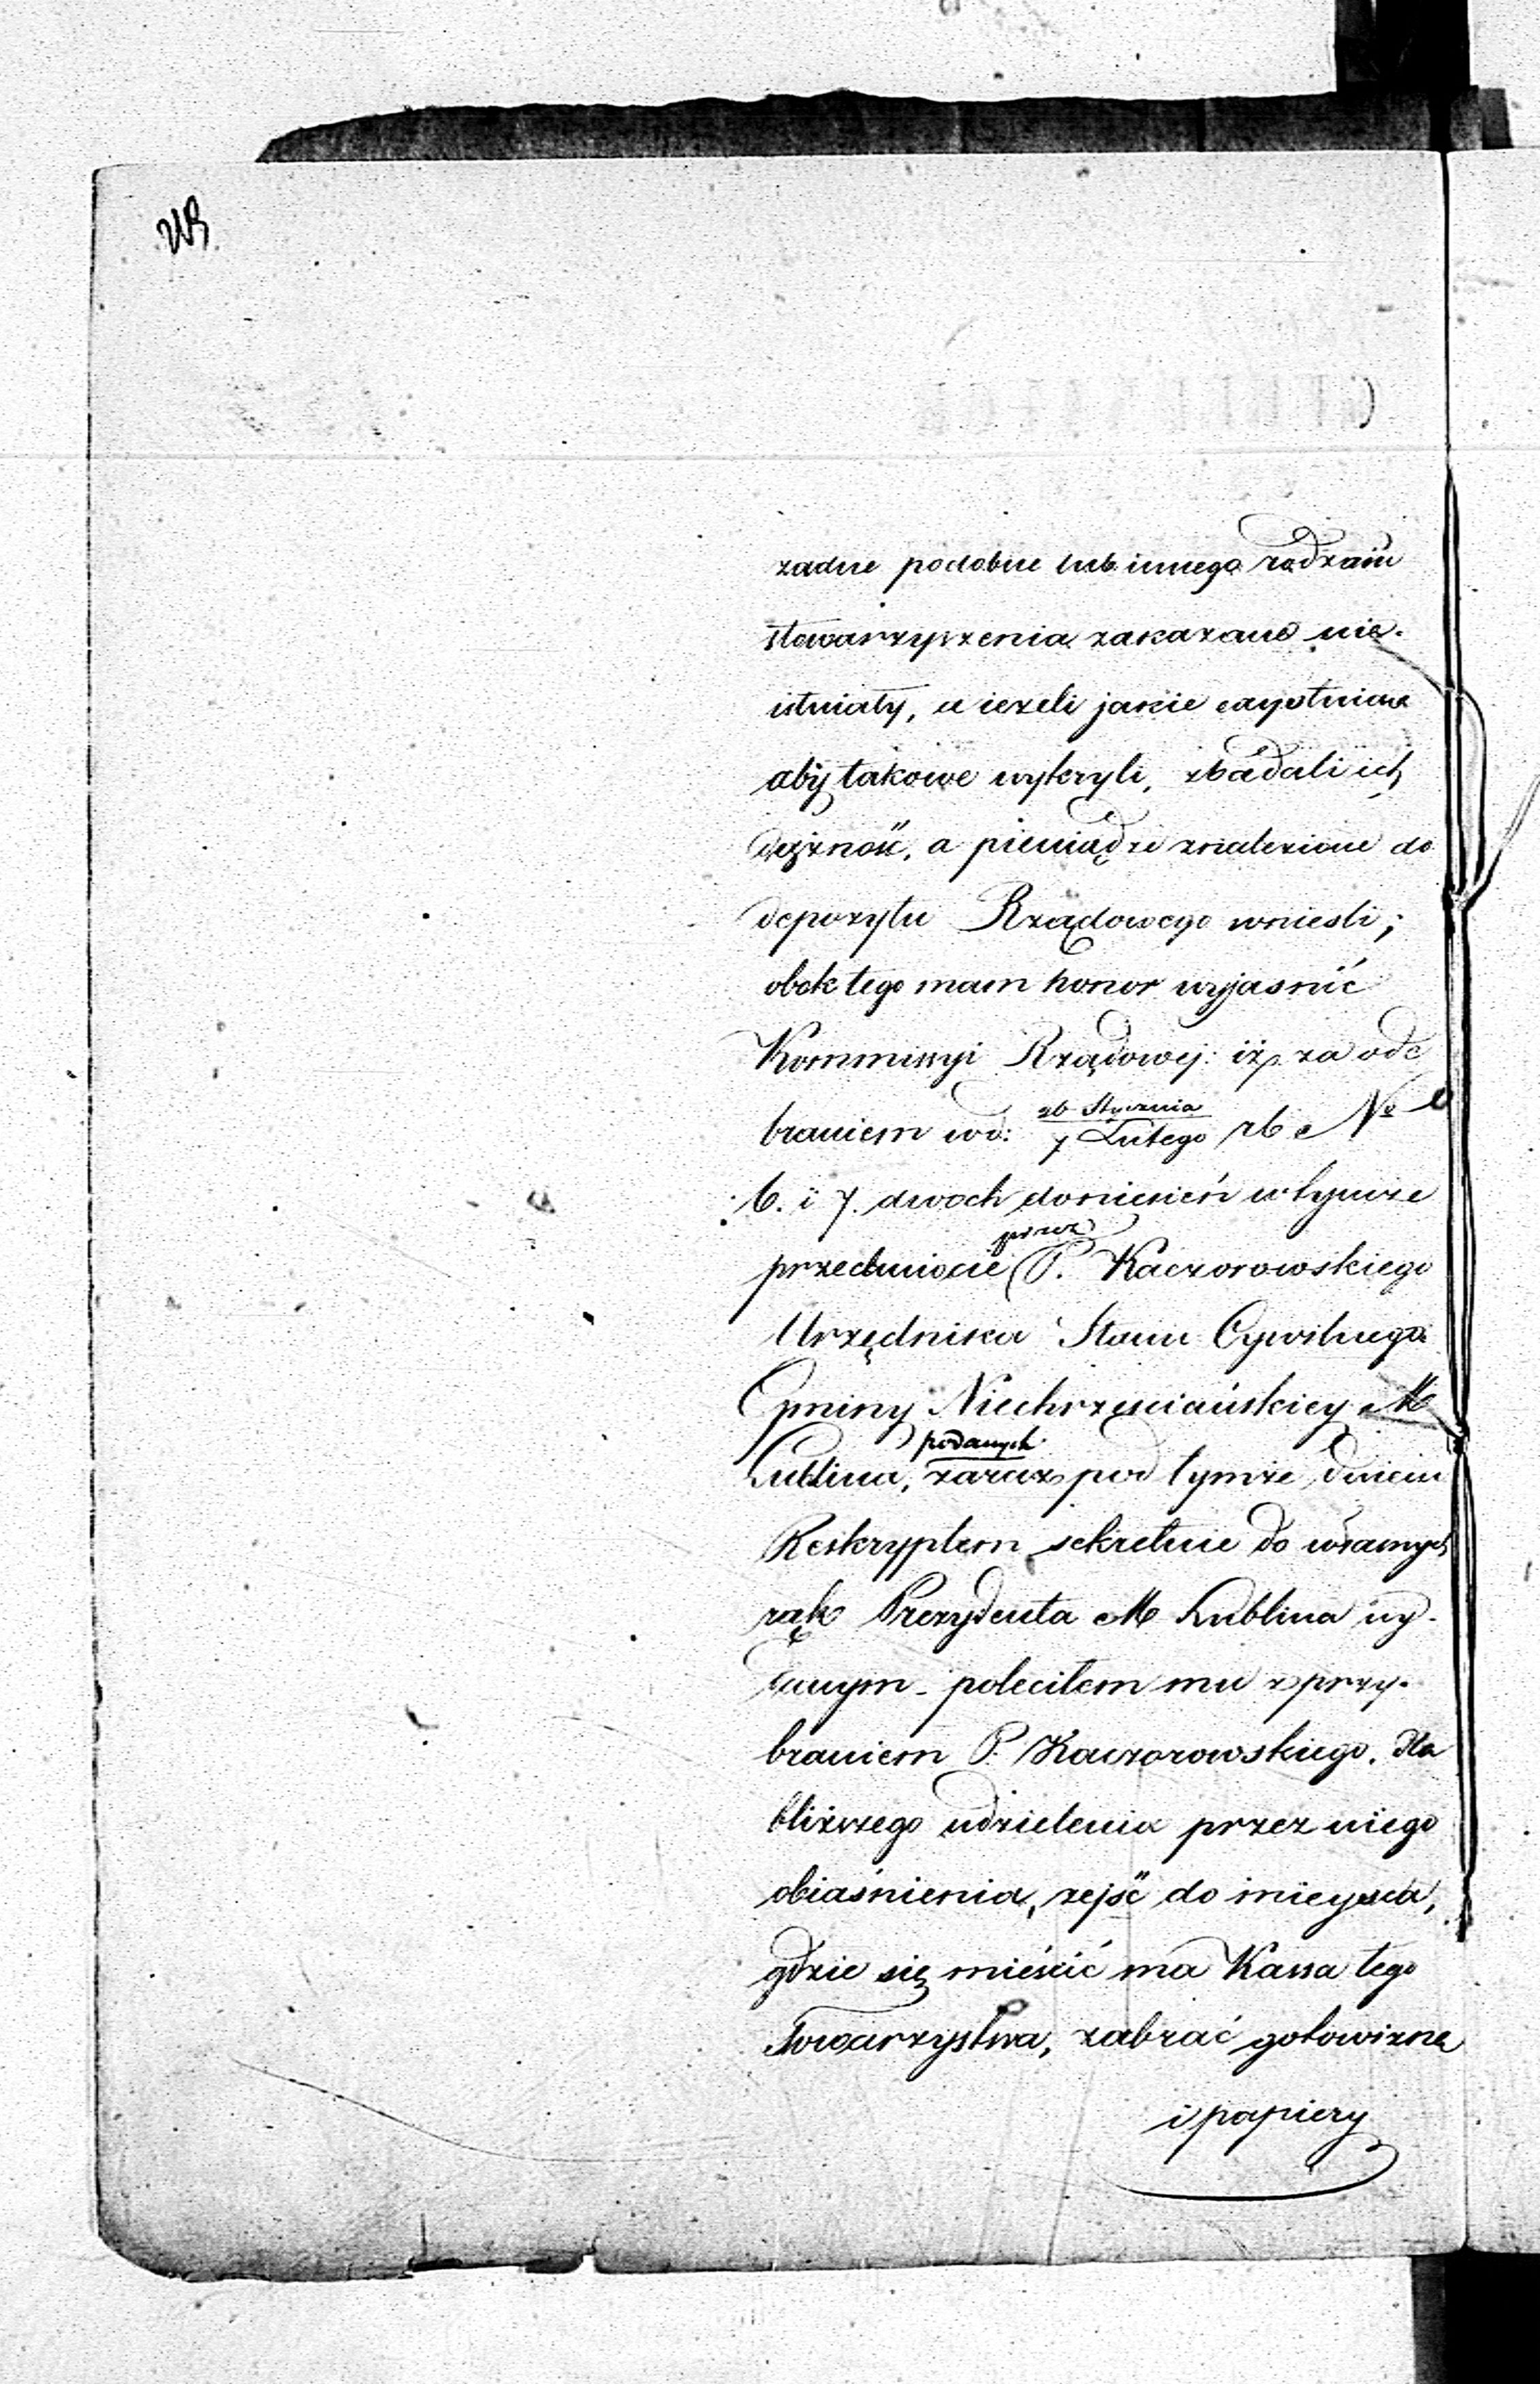 żadne podobne lub innego rodzaiu
stowarzyszenia zakazane nie-
istniały, a ieżeli jakie egzystuią
aby takowe wykryli, zbadali ich
dążność, a pieniądze znalezione do
depozytu Rządowego wnieśli;
obok tego mam honor wyjaśnić
Kommissyi Rządowej: iż za ode
braniem wd: 26 Stycznia / 7 Lutego rb No
6. i 7. dwóch doniesień w tymże
przedmiocie przez P. Kaczorowskiego
Urzędnika Stanu Cywilnego
Gminy Niechrześciańskiey M
Lublina, podanych zaraz pod tymże dniem
Reskryptem sekretnie do własnych
rąk Prezydenta M Lublina wy-
danym - poleciłem mu z przy-
braniem P. Kaczorowskiego, dla
bliższego udzielenia przez niego
obiaśnienia, zejść do mieysca,
gdzie się mieścić ma Kassa tego
Towarzystwa, zabrać gotowiznę
i papiery